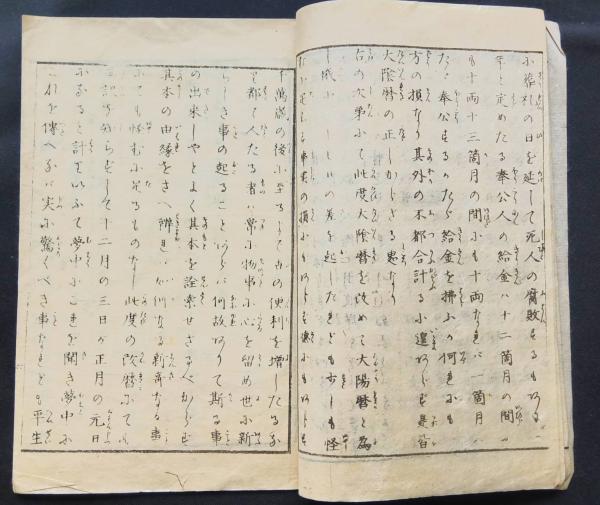 に葬礼の日を延して死人の腐敗するもあらん一
年と定めたる奉公人の給金ハ十二箇月の間に
も十両十三箇月の間にも十両なれバ一箇月ハ
たゞ奉公するかたゞ給金を拂ふか何れにも
方の損なり其外の不都合計るに遑あらず是皆
大陰暦の正しからざる處なり
右の次第にて此度大陰暦を改めて大陽暦と為
し俄に の差を起したれども少しも怪
むに足らず事実の損にも徳にも
千萬歳の後に至るまて の便利を増したるな
り都て人たる者ハ常に物事に心を留め世に新
らしき事の起ることあらバ何故ありて斯る事
の出来しやとよく其本を詮索せざるべからず
其本の由縁をさへ辨れバ如何なる新奇なる事
にても怪むに足るものなし此度の改暦にても
其訳を知らずして十二月の三日が正月の元日
になると計いふて夢中にこれを聞き夢中に
これを傳へなバ実に驚くべき事なれども平生